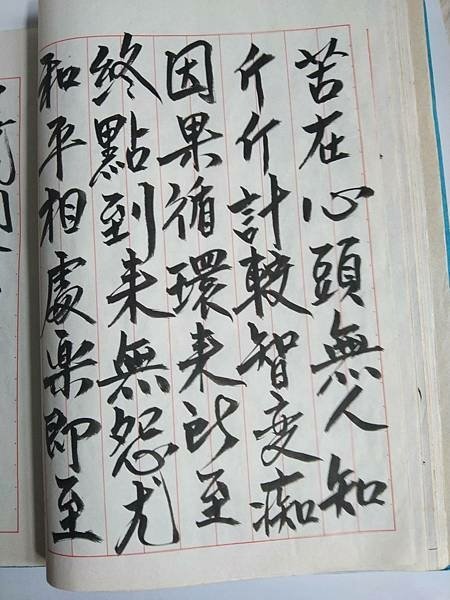 苦在心頭無人知
斤斤計較智变痴
因果循環来此至
終點到来無怨尤
和平相處楽即至